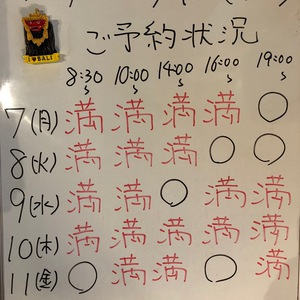 I ♥ BALI
ご予約状況
8:30〜 10:00〜 14:00〜 16:00〜 19:00〜
7(月) 満 満 満 満 ○
8(火) 満 満 満 ○ ○
9(水) 満 満 ○ 満 満
10(木) 満 満 満 満 満
11(金) ○ 満 満 ○ 満